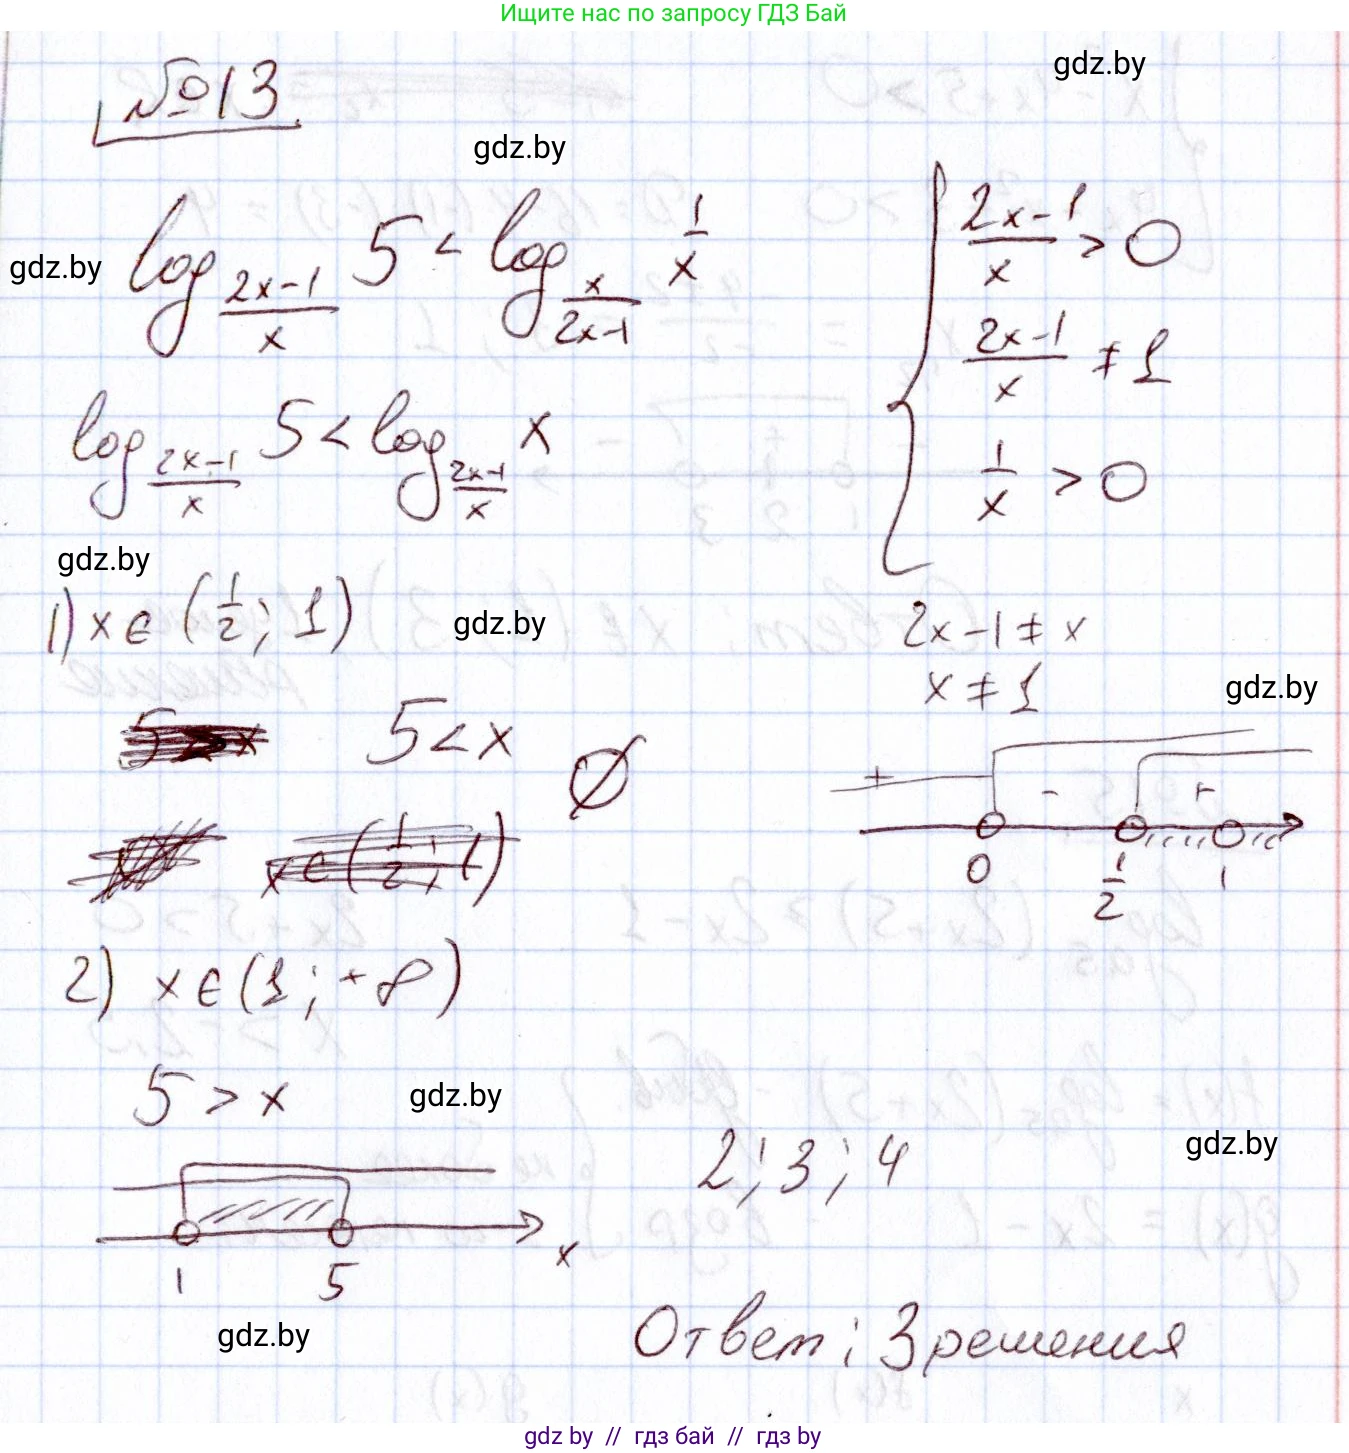 Ищите нас по запросу ГДЗ Бай
№13
gdz.by
gdz.by
gdz.by
log_{(2x-1)/x} 5 < log_{x/(2x-1)} 1/x
log_{(2x-1)/x} 5 < log_{(2x-1)/x} x
{ (2x-1)/x > 0
(2x-1)/x ≠ 1
1/x > 0
gdz.by
1) x ∈ (1/2; 1)
gdz.by
2x-1 ≠ x
x ≠ 1
gdz.by
5 < x ∅
+ - +
0 1/2 1
2) x ∈ (1; +∞)
5 > x
gdz.by
1 5 x
2; 3; 4
gdz.by
gdz.by
Ответ: 3 решения
gdz by // гдз бай // гдз by